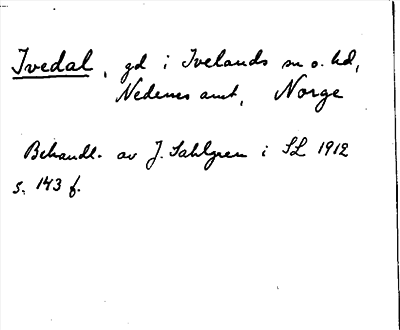 Ivedal, gd i Ivelands sn o. hd,
Nedenes amt, Norge
Behandl. av J. Sahlgren i SL 1912
s. 143 f.